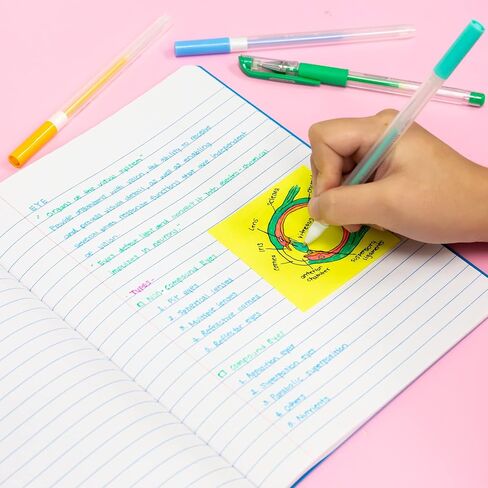 EYE
• Organs of the visual system
Provide organisms with vision, the ability to receive
and process visual detail, as well as enabling
several photo response functions that are independent
of vision.
• Eyes detect light and convert it into electro-chemical
impulses in neurons.
TYPES:
Non-Compound Eyes
1. Pit eyes
2. Spherical lenses
3. Multiple lenses
4. Refractive cornea
5. Reflector eyes
Compound Eyes
1. Apposition eyes
2. Superposition eyes
3. Parabolic superposition
4. Others
5. Nutrients
sclera
lens
iris
cornea
anterior
chamber
suspensory
ligaments